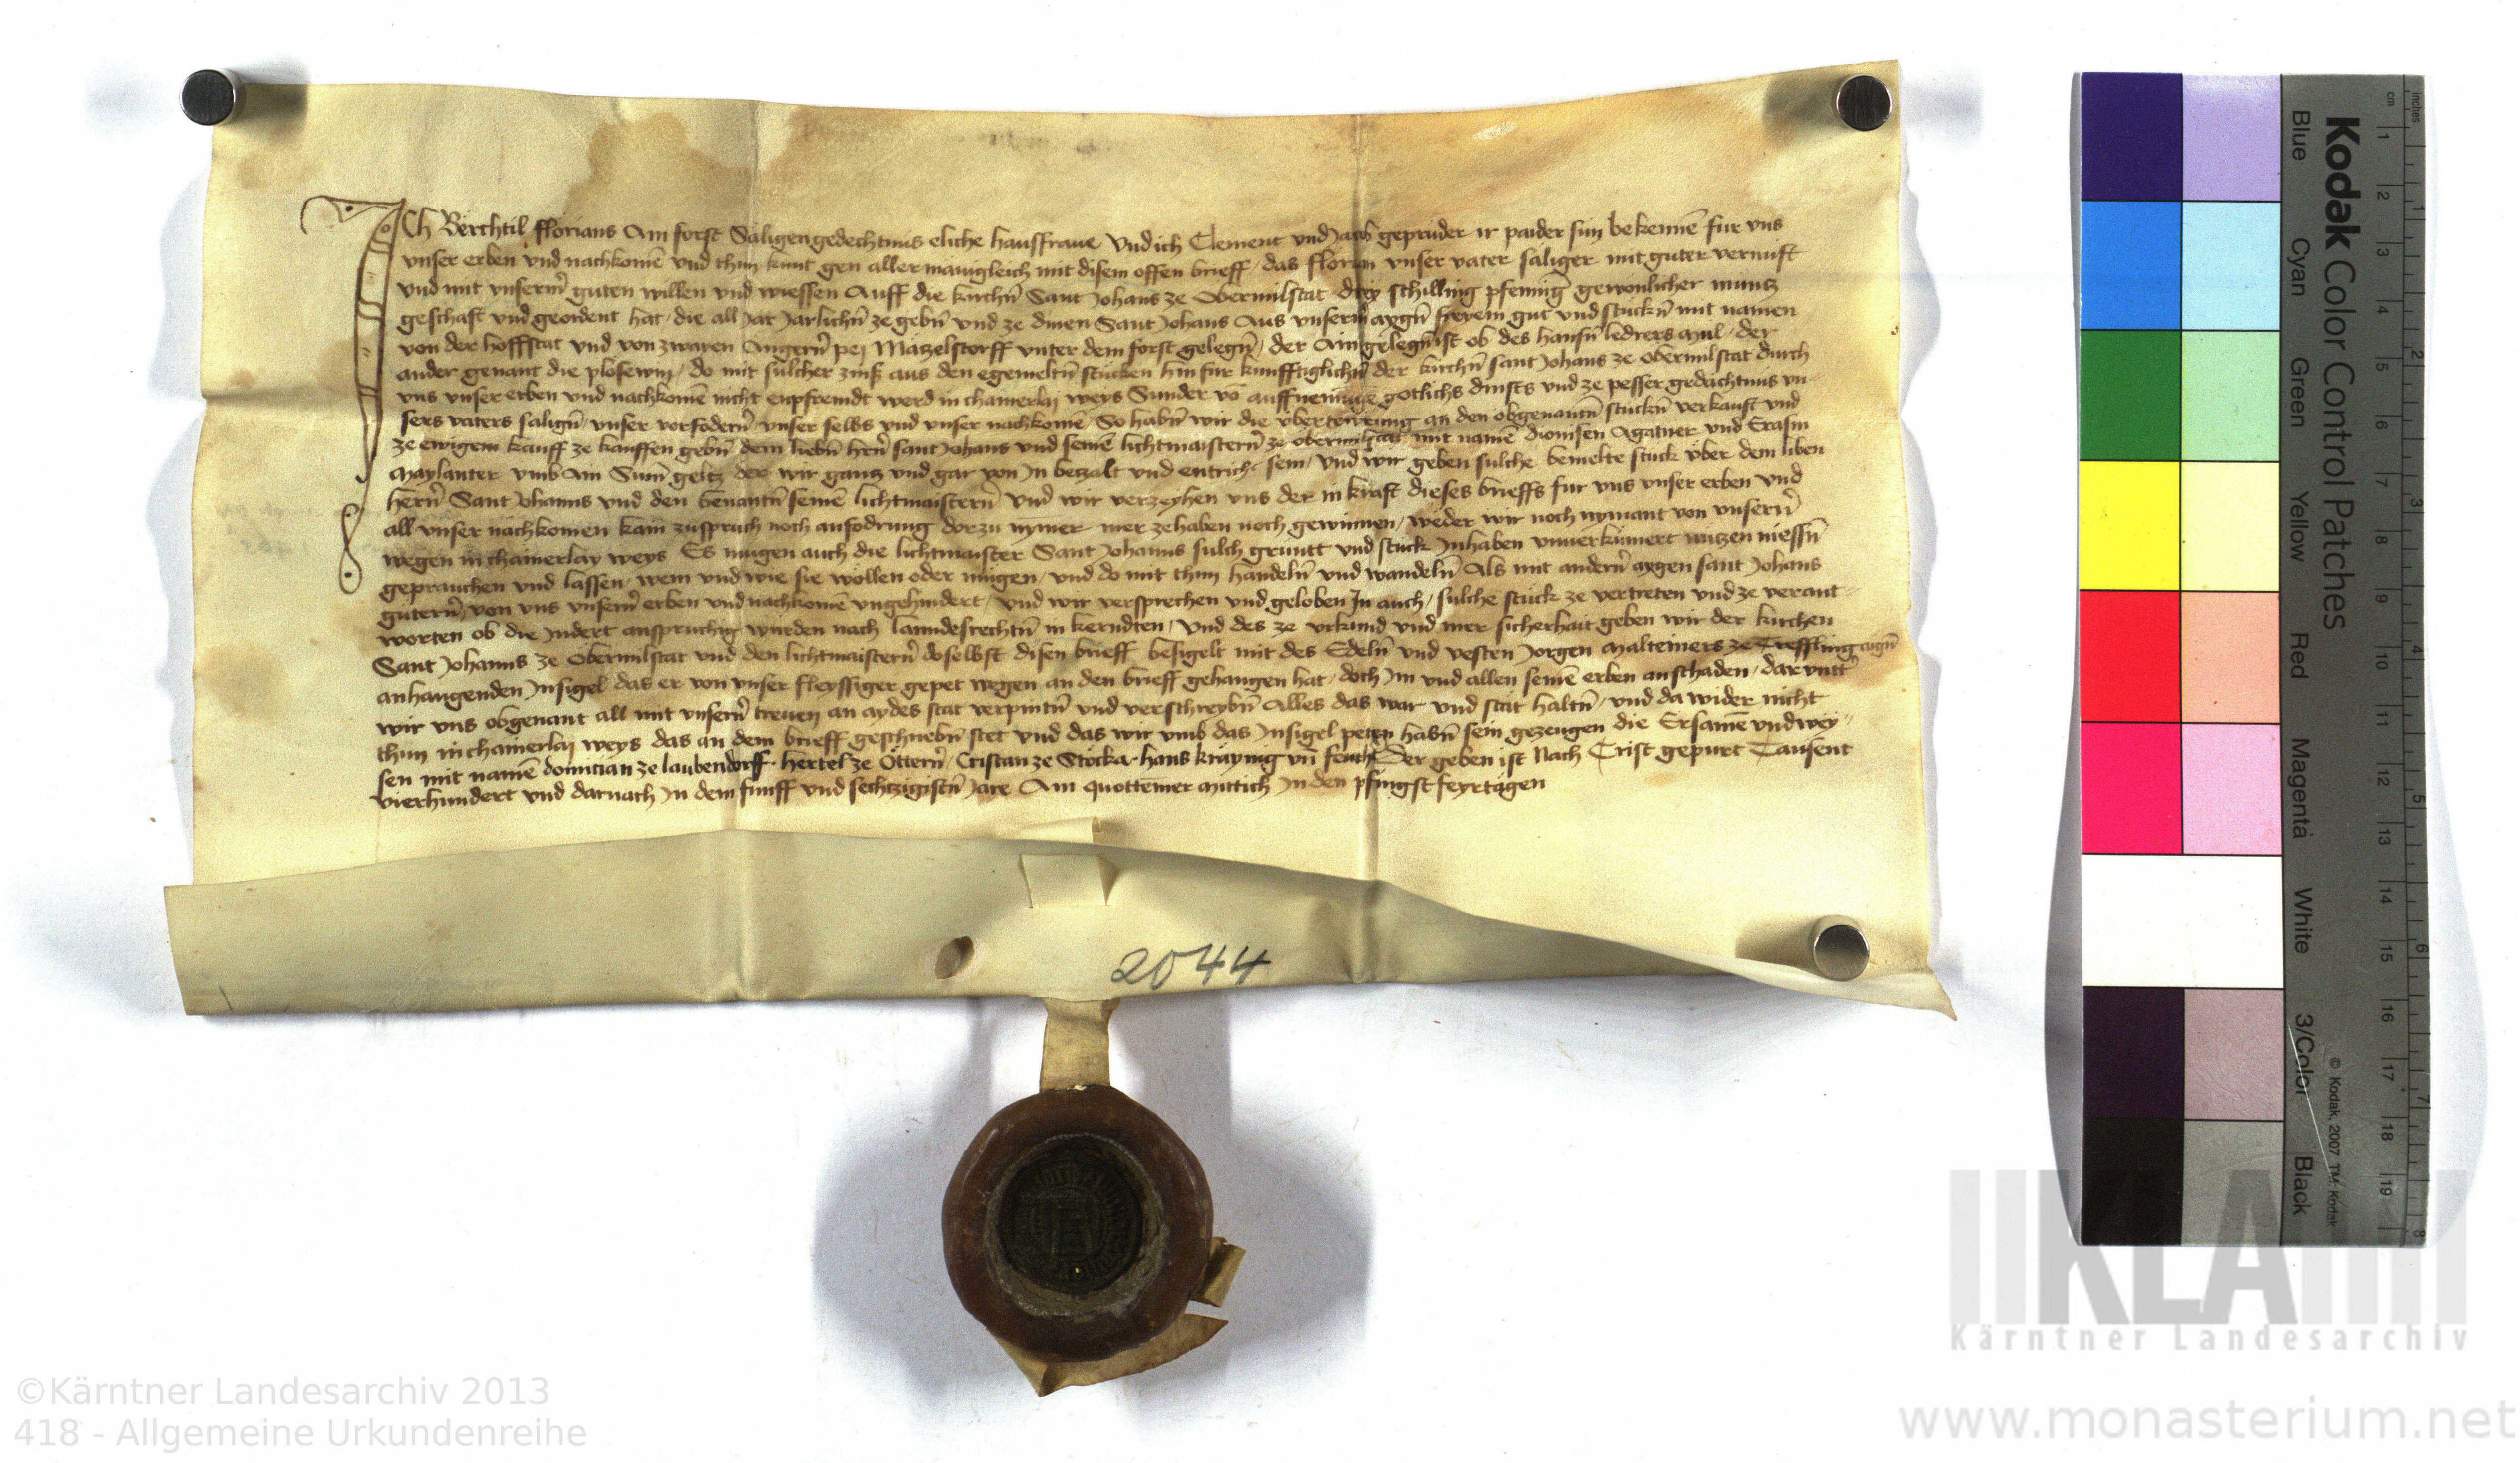 Ich Berchtil florians Am forst Säligen gedechtnus eliche hausfraue Vnd ich Clement vnd Jacob geprüder ir paider sün bekennē fur vns
vnser erben vnd nachkomē vnd thun kunt gen allermänigleich mit disem offen brieff / das florian vnser vater säliger mit guter vernuft
vnd mit vnserm̄ guten willen vnd wiessen Auff die kirchn̄ Sant Johans ze Obermilstat drey schilling pfening gewonlicher munts
geschaft vnd geordent hat / die all Jar Jarlichn̄ ze gebn̄ vnd ze dinen Sant Johans Aus vnserm̄ aygn̄ freyem gut vnd stuckn̄ mit namen
von der hoffstat vnd von zwayen Angern̄ pei Mätzelstorff vnter dem forst gelegn̄ / der Ain gelegn̄ ist ob des hansn̄ ledrers mul / der
ander genant die plosewin / do mit sulcher zinß aus den egemeltn̄ stucken hin fur kunfftiglichn̄ der kirchn̄ sant Johans ze obermilstat durch
vns vnser erben vnd nachkomē nicht enpfremdt werd in chainerlaj weys Sunder vō auffnemung gotlichs dinsts vnd ze pesser gedachtnus vn
sers vaters salign̄ / vnser vorfodern̄ / vnser selbs vnd vnser nachkomē So habn̄ wir die vberteurung an den obgenantn̄ stuckn̄ verkauft vnd
ze ewigem kauff ze kauffen gebn̄ dem liebn̄ hrn̄ sant Johans vnd seinē lichtmaistern̄ ze obermilstat mit namē dionisen Agatner vnd Erasm
Maylanter vmb Ain Sum̄ geltz der wir gantz vnd gar von Jn betzalt vnd entricht sein / vnd wir geben sulche bemelte stuck vber dem liben
hern̄ Sant Johanns vnd den benantn̄ seinē lichtmaistern̄ vnd wir verzeyhen vns der in kraft dieses brieffs fur vns vnser erben vnd
all vnser nachkomen kain zuspruch noch anfodrung dorzu nymer mer zehaben noch gewinnen / weder wir noch nymant von vnsern̄
wegen in chainerlay weys Es mugen auch die lichtmaister Sant Johanns sulch gruntt vnd stuck Jnhaben vnuerkumert nutzen niessn̄
geprauchen vnd lassen / wem vnd wie sie wollen oder mugen / vnd do mit thun handeln̄ vnd wandeln̄ Als mit andern̄ aygen sant Johans
gutern̄ / von vns vnsern̄ erben vnd nachkomē vngehindert / vnd wir versprechen vnd geloben Jn auch / sulche stuck ze vertreten vnd ze verant
worten ob die Jndert anspruchig wurden nach lanndesrechtn̄ in kerndten / Vnd des ze vrkund vnd mer sicherhait geben wir der kirchen
Sant Johanns ze Obermilstat vnd den lichtmaistern̄ doselbst disen brieff besigelt mit des Edeln̄ vnd vesten Jorgen Malteiners ze Treffling aign̄
anhangenden Jnsigel das er von vnser fleyssiger gepet wegen an den brieff gehangen hat / doch Jm vnd allen seinē erben an schaden / dar vntt̄
wir vns obgenant all mit vnsern̄ treuen an aydes stat verpintn̄ vnd verschreybn̄ Alles das war vnd stät haltn̄ / vnd da wider nicht
thun in chainerlaj weys das an dem brieff geschriebn̄ stet vnd das wir vmb das Jnsigel peten habn̄ sein gezeugen die Ersamē vnd wey
sen mit namē domitian ze laubendorff hertel ze Öttern̄ / Cristan ze Stocka hans kräynig vn̄ Der geben ist Nach Crist gepurt Tausent
vierhundert vnd darnach Jn dem funff vnd sechtzigistn̄ Jare Am quottēmer mittich Jn den pfingst feyrtagen
2044
Kodak Color Control Patches
Blue Cyan Green Yellow Red Magenta White 3/Color Black
© Kodak, 2007 TM: Kodak
cm 1 2 3 4 5 6 7 8 9 10 11 12 13 14 15 16 17 18 19
inches 1 2 3 4 5 6 7 8
KLA
Kärntner Landesarchiv
©Kärntner Landesarchiv 2013
418 - Allgemeine Urkundenreihe
www.monasterium.net